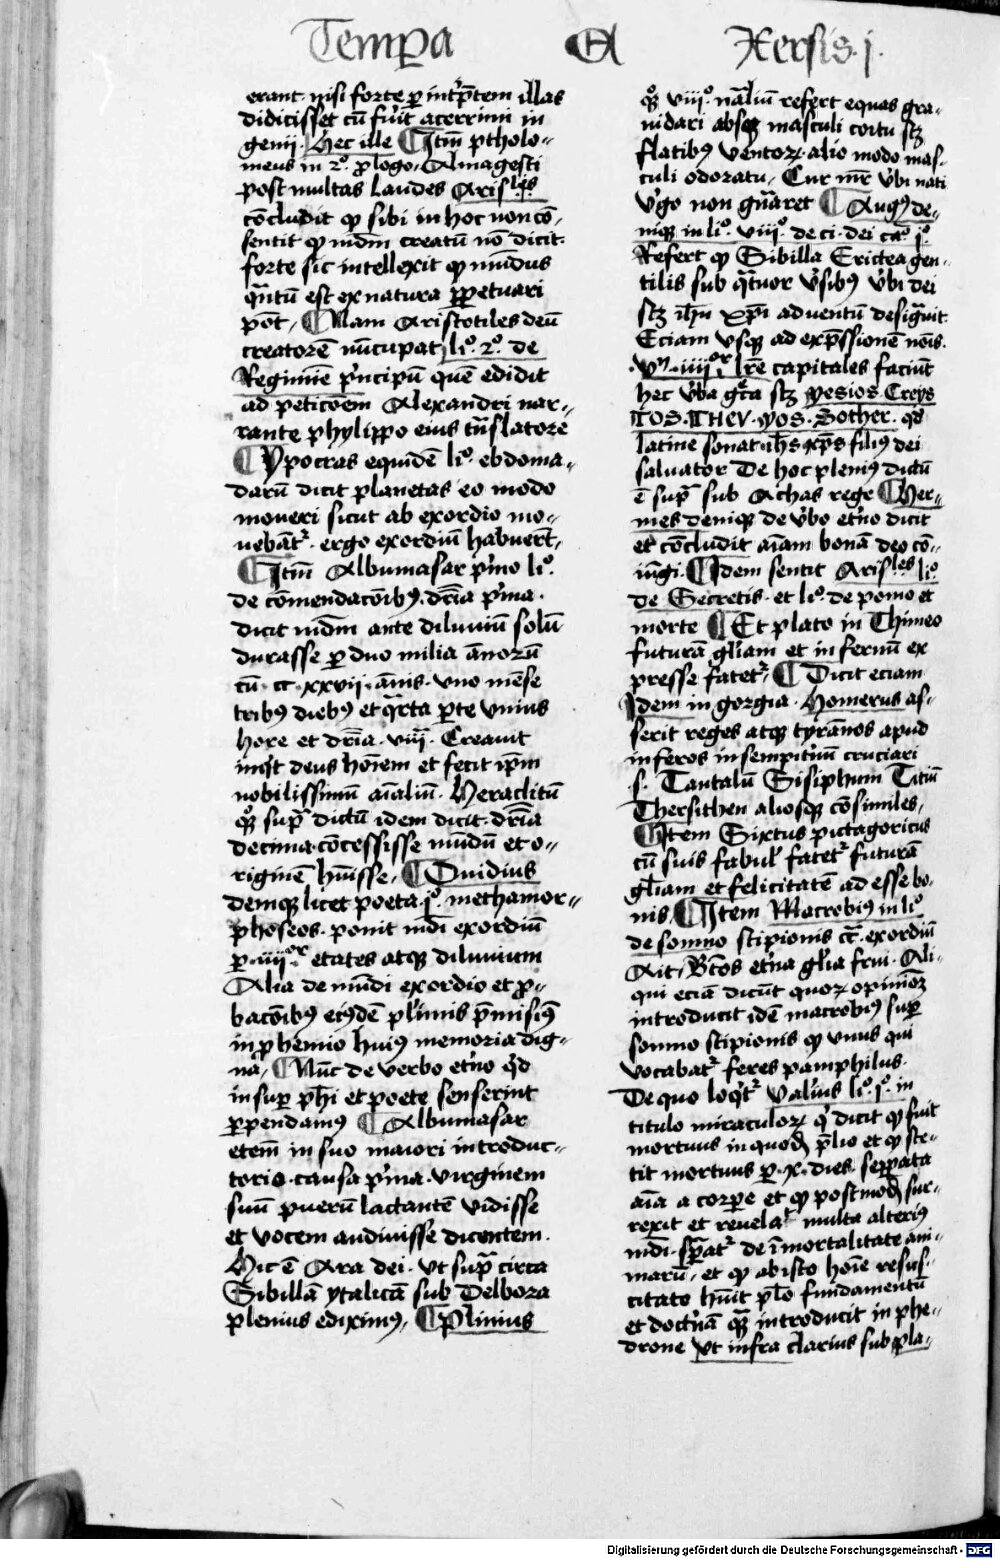 Tempa Et Xersis .j.
erant. nisi forte ꝑ int̄p̄tem illas
didicisset cū fūit acerrimi in
genij. Hec ille ¶ Itm̄ ptholo-
meus in 2º. ꝓlogo. Almagesti
post multas laudes Arisˡᵉˢ
cōcludit ꝙ sibi in hoc non cō-
sentit ꝙ mdm̄ creatū nō dicit.
forte sic intellexit ꝙ mūdus
qn̄tū est ex natura ꝑpetuari
pōt, ¶ Nam Aristotiles deū
creatorē nūcupat li°. 2°. de
Regimīe p'ncipū quē edidit
ad peticōem Alexandri nar-
rante phylippo eius tn̄slatore
¶ Ypocras equidē li°. ebdoma-
darū dicit planetas eo modo
moueri sicut ab exordio mo-
uebāt². ergo exordiū habuer̄t,
¶ Itm̄ Albumasar p'mo li°.
de cōmendacōibꝫ. dr̄ia p'ma.
dicit mdm̄ ante diluuiū solū
durasse ꝑ duo milia ānorū
cū. cc. xxvij. ānis. vno mēse
tribꝰ diebꝰ et qr̄ta ꝑte vnius
hore et dr̄ia. viij. Creauit
inq̇t deus hoīem et fecit ip̄m
nobilissimū aīaliū. Heraclitū
qꝫ sup̄ dictū idem dicit. dr̄ia
decima. cōcessisse mūdū et o-
riginē hūisse, ¶ Ouidius
demqꝫ licet poeta. j°. methamor-
phoseos. ponit mdī exordiū
ꝑ. iiijᵒʳ. etates atqꝫ diluuium
Alia de mūdi exordio et ꝓ-
bacōibꝰ eiꝰdē pl'imis p̄misiꝰ
in ꝓhemio huiꝰ memoria dig-
nā, ¶ Nūc de verbo et'no q̇d
insuꝑ ph̄i et poete senserint
ꝑpendamꝰ ¶ Albumasar
etem̄ in suo maiori introduc-
torio. causa p'ma. virginem
suū puerū lactantē vidisse
et vocem audiuisse dicentem.
Hic ē Ara dei. vt sup̄ circa
Sibillā ytalicā sub Delbora
plenius ediximꝰ, ¶ Plinius
qꝫ viij°. nāliū refert equas gra-
uidari absqꝫ masculi coitu sꝫ
flatibꝰ ventoꝝ. alio modo mas-
culi odoratu, Cur mr̄ v'bi nati
v'go non gn̄aret ¶ Augꝰ de-
niqꝫ in li°. viij°. de ci. dei ca°. j°.
Refert ꝙ Sibilla Erictea gen-
tilis sub q̄tuor v'sibꝰ v'bi dei
sꝫ ih̄u xp̄i aduentū desig'uit.
Eciam vsqꝫ ad exp̄ssionē nōis.
Vn̄. iiijᵒʳ lr̄e capitales faciūt
hec v'ba gr̄a sꝫ yesios Creys
TOS. THEV. yos. Sother. qd̄
latine sonat. ih̄s xp̄s filiꝰ dei
saluator De hoc pleniꝰ dictū
ē sup̄ sub Achas rege ¶ Her-
mes deniqꝫ de v'bo et'no dicit
et cōcludit aīam bonā deo cō-
iūgi. ¶ Idem sentit Arisˡᵉˢ li°
de Secretis. et li°. de pomo et
morte ¶ Et plato in Thimeo
futurā gl'iam et infernū ex
presse fatet², ¶ Dicit eciam
Idem in gorgia. Homerus as-
serit reges atqꝫ tyrānos apud
inferos in sempit'nū cruciari
.s. Tantalū Sisiphum Titiū
Thersithen aliosqꝫ cōsimiles,
¶ Item Sixtus pictagoricus
cū suis fabul' fatet² futurā
gl'iam et felicitatē adesse bo-
nis, ¶ Item Macrobiꝰ in li°
de somno scipionis exordiū
Ait. Btōs et'na gl'ia frui. Ali-
qui eciā dicūt quoꝝ opinioꝫ
introducit idē macrobiꝰ suꝑ
somno scipionis ꝙ vnus qui
vocabat² feres pamphilus.
De quo loq̇t² Valri'us li°. j°. in
titulo miraculoꝝ q̇ dicit ꝙ fuit
mortuus in quod̄ p̄lio et ꝙ ste-
tit mortuus ꝑ. x. dies. sepata
aīa a corꝑe et ꝙ postmod̄ sur-
rexit et reuela² multa alteriꝰ
mdī. sp̄at² de īmortalitate ani-
marū, et ꝙ ab isto hoīe resus-
citato hūit plō fundamentū
et doct'nā qꝫ introducit in phe-
drone vt infra clarius sub pla-
Digitalisierung gefördert durch die Deutsche Forschungsgemeinschaft - DFG